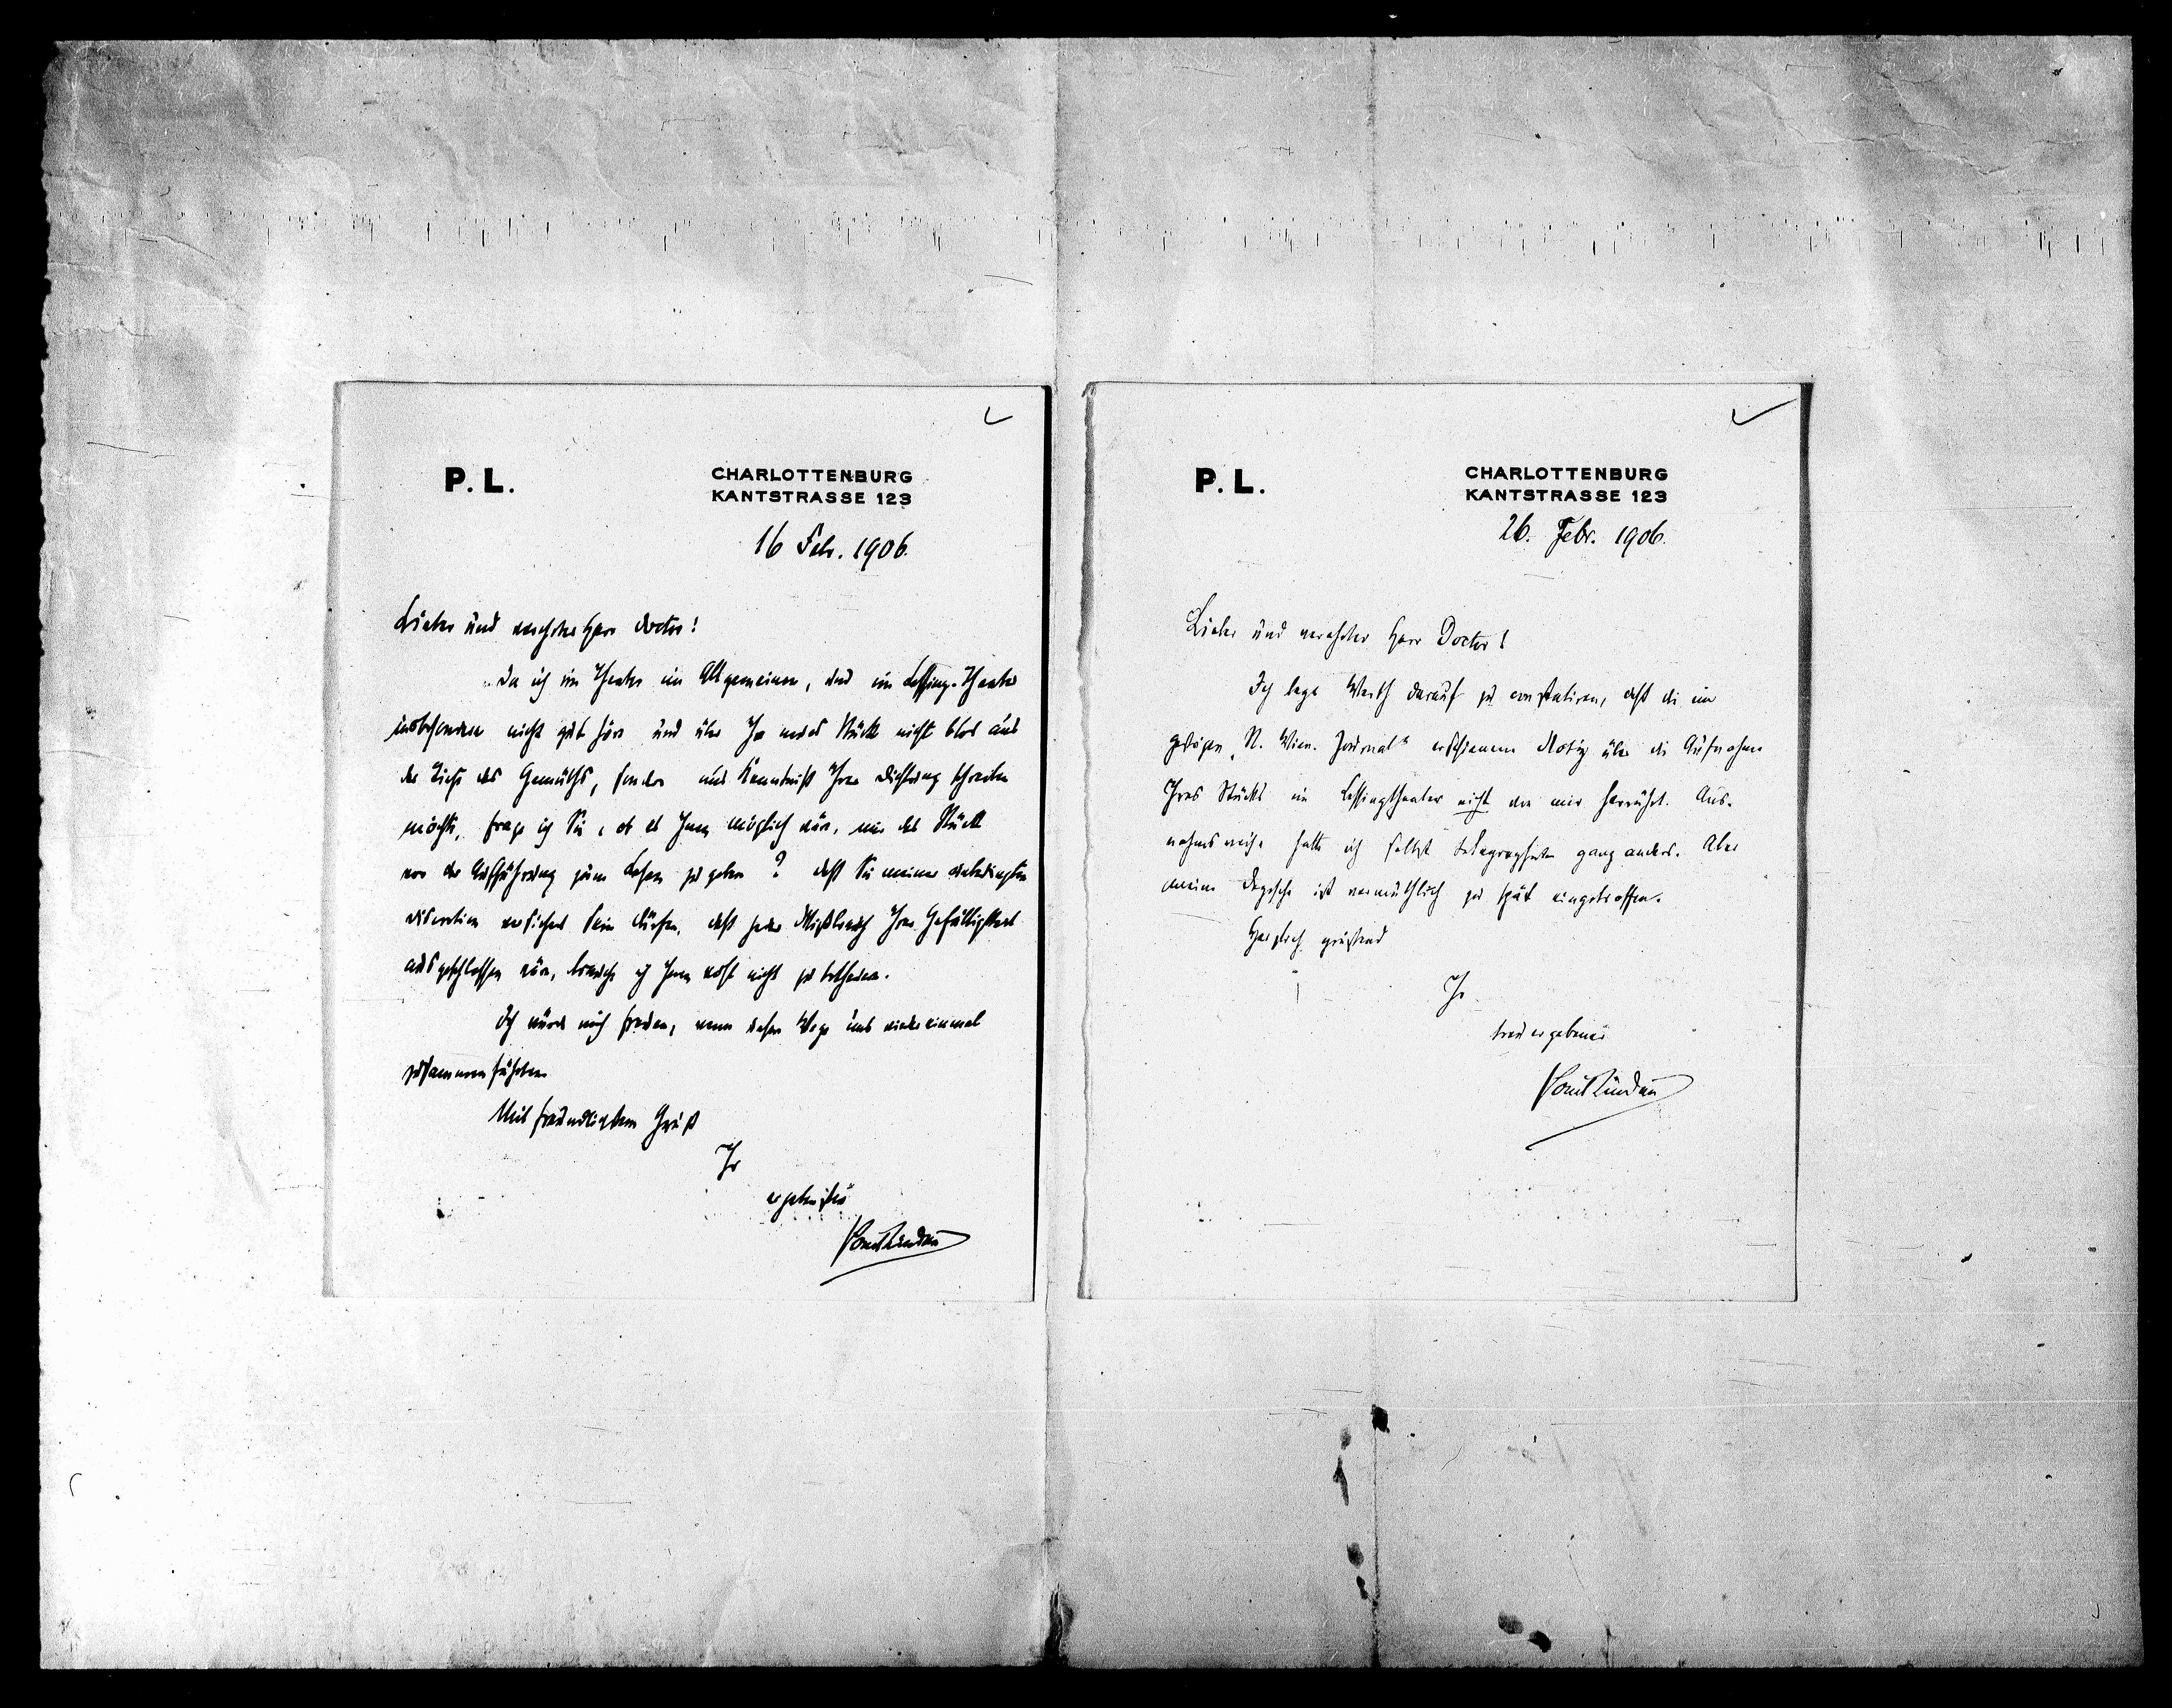 P. L.
CHARLOTTENBURG
KANTSTRASSE 123
16 Febr. 1906.
Lieber und verehrter Herr Doctor!
Da ich im Theater im Allgemeinen, und im Lessing-Theater
insbesondere nicht gut höre und über Ihr neues Stück nicht blos aus
der Tiefe des Gemüths, sondern aus Kenntniß Ihrer Dichtung schreiben
möchte, frage ich Sie, ob es Ihnen möglich wäre, mir das Stück
vor der Aufführung zum Lesen zu geben? Daß Sie meiner unbedingten
Discretion versichert sein dürfen, daß jeder Mißbrauch Ihrer Gefälligkeit
ausgeschlossen wäre, brauche ich Ihnen wohl nicht zu betheuern.
Ich würde mich freuen, wenn unsere Wege uns wieder einmal
zusammenführten.
Mit freundlichstem Gruß
Ihr
ergebenster
Paul Lindau
P. L.
CHARLOTTENBURG
KANTSTRASSE 123
26. Febr. 1906.
Lieber und verehrter Herr Doctor!
Ich lege Werth darauf zu constatiren, daß die im
gestrigen „N. Wien. Journal“ erschienene Notiz über die Aufnahme
Ihres Stücks im Lessingtheater nicht von mir herrührt. Aus-
nahmsweise hatte ich selbst telegraphirt ganz anders. Aber
meine Depesche ist vermuthlich zu spät eingetroffen.
Herzlich grüßend
Ihr
treu ergebener
Paul Lindau